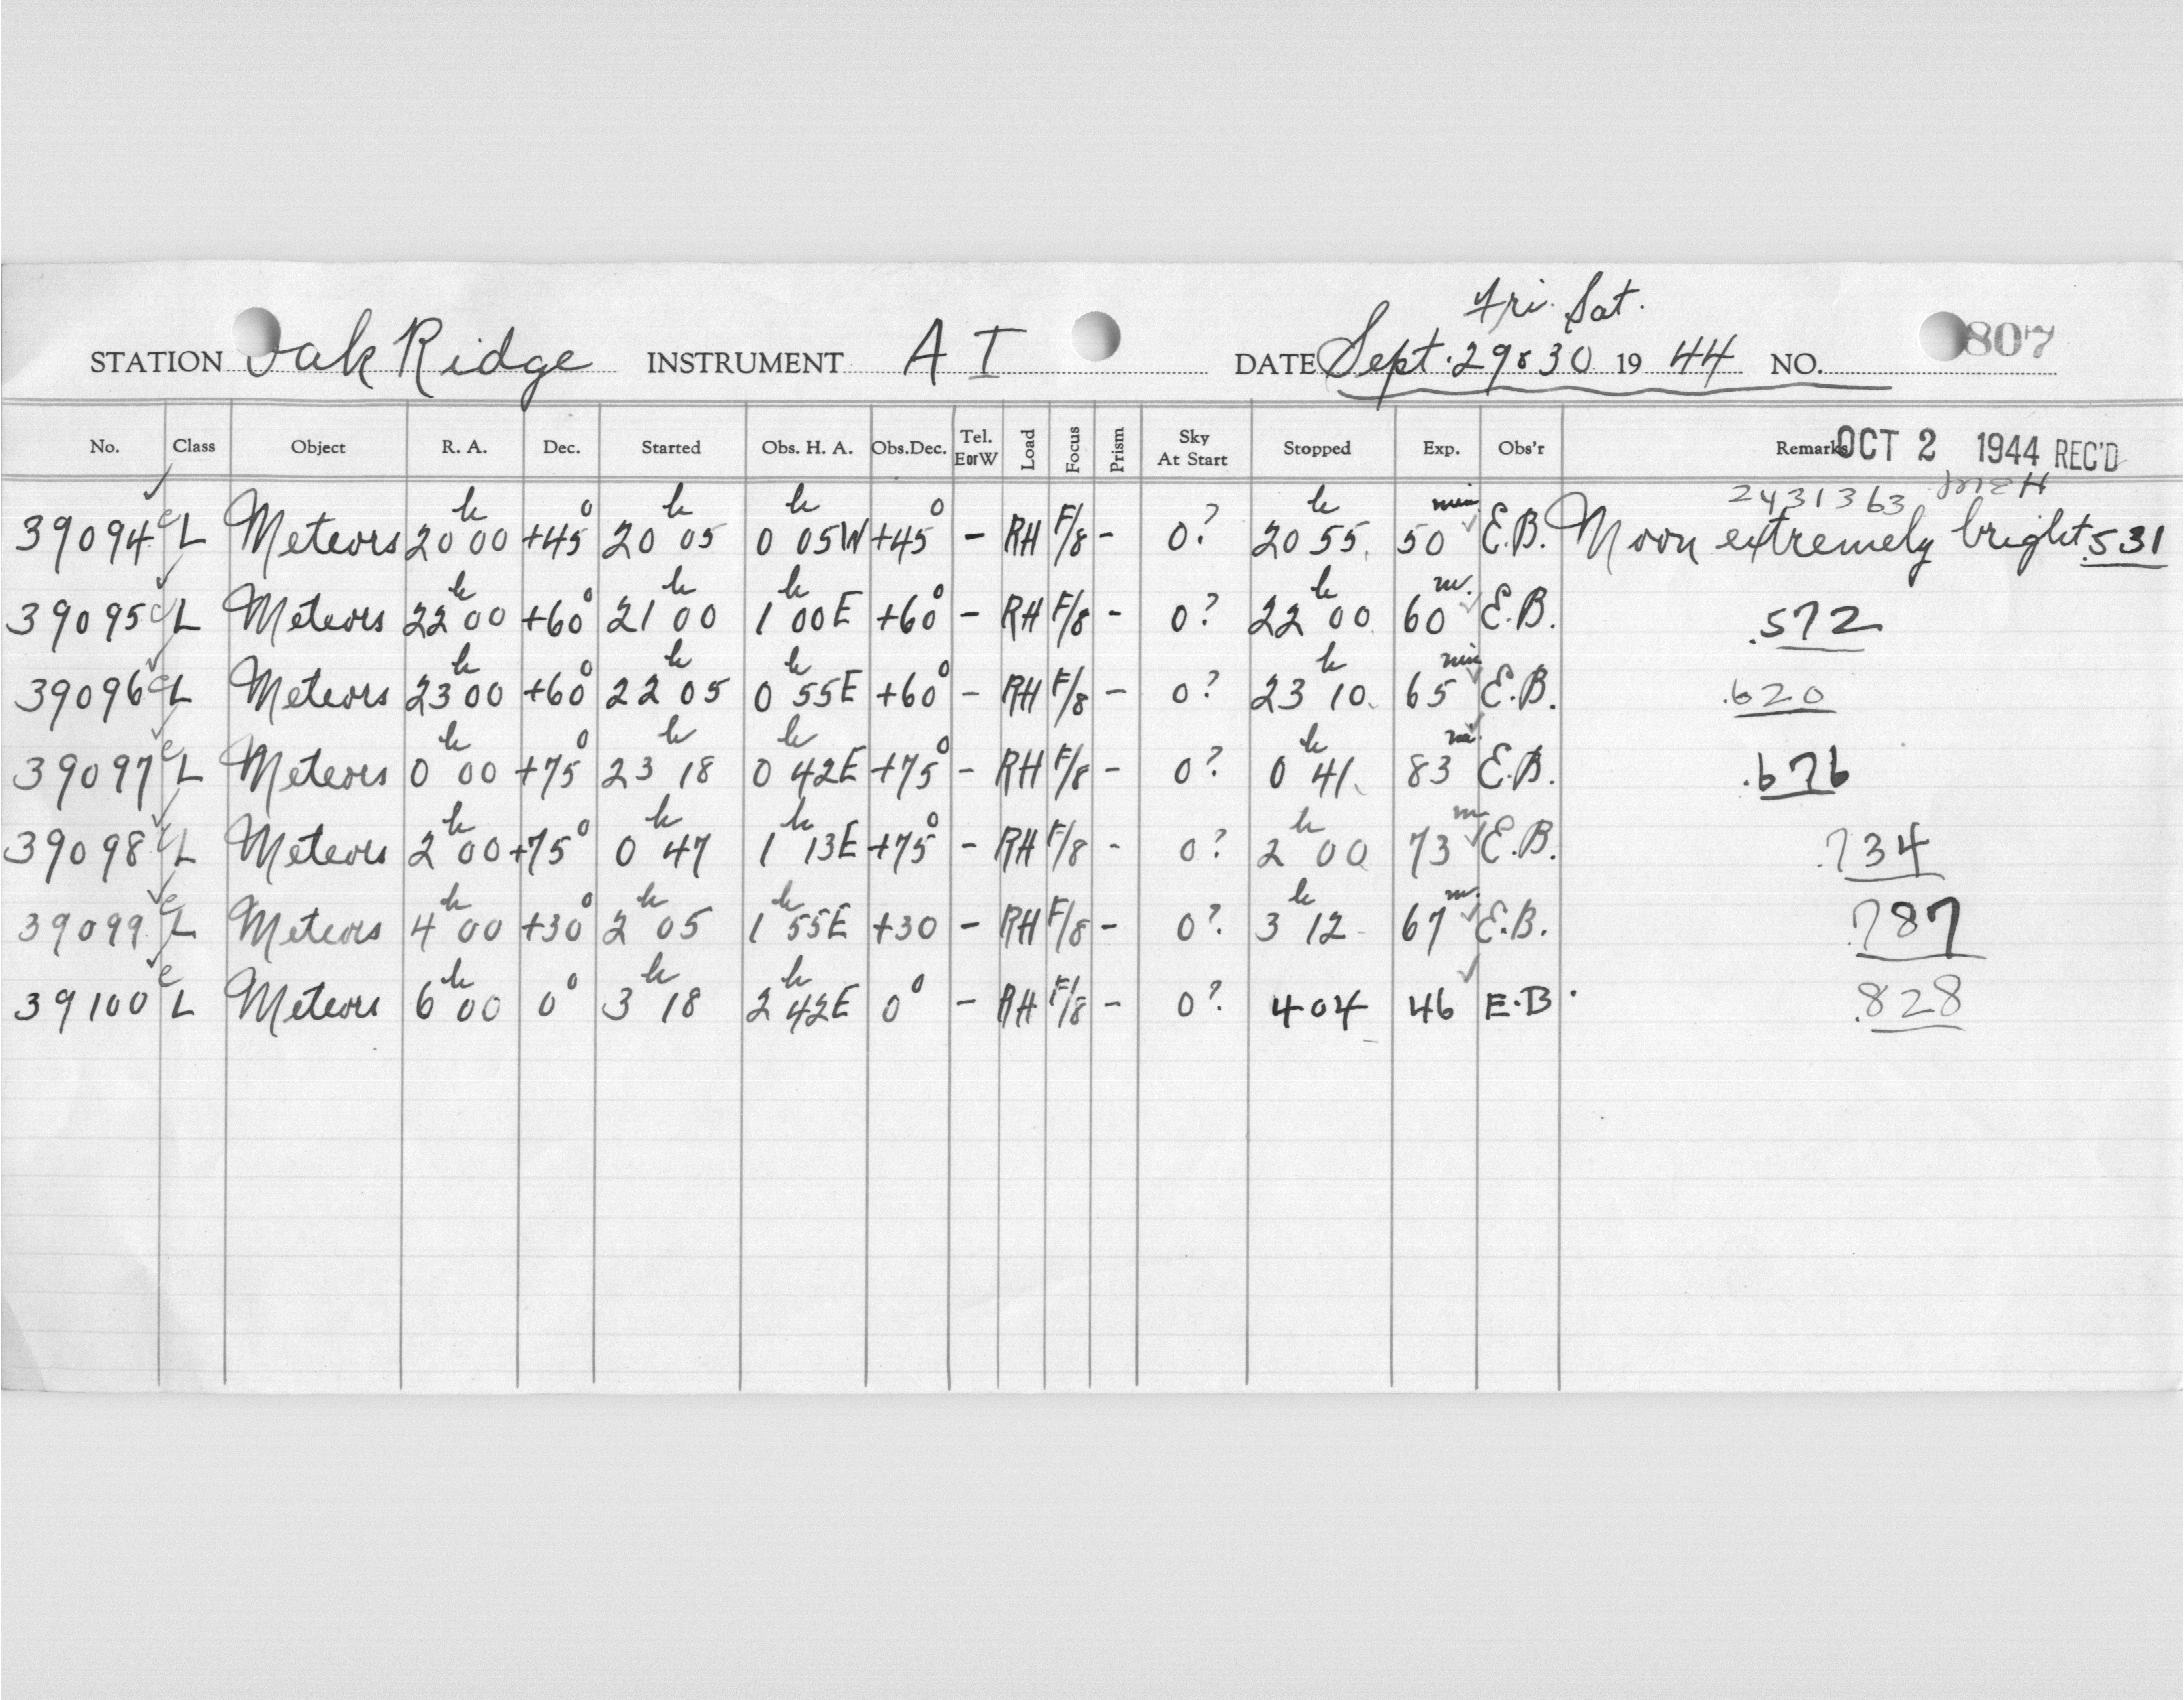 Fri. Sat.
STATION Oak Ridge INSTRUMENT A I DATE Sept. 29 & 30 19 44 NO. 807
No. Class Object R. A. Dec. Started Obs. H. A. Obs. Dec. Tel. E or W Load Focus Prism Sky At Start Stopped Exp. Obs'r Remarks OCT 2 1944 REC'D
2431363
39094 e L Meteors 20h 00 +45° 20h 05 0h 05W +45° - RH F/8 - 0? 20h 55 50 min ✓ E.B. Moon extremely bright .531
39095 L Meteors 22h 00 +60° 21h 00 1h 00E +60° - RH F/8 - 0? 22h 00 60 m. ✓ E.B. .572
39096 e L Meteors 23h 00 +60° 22h 05 0h 55E +60° - RH F/8 - 0? 23h 10 65 min ✓ E.B. .620
39097 e L Meteors 0h 00 +75° 23h 18 0h 42E +75° - RH F/8 - 0? 0h 41 83 ✓ E.B. .676
39098 L Meteors 2h 00 +75° 0h 47 1h 13E +75° - RH F/8 - 0? 2h 00 73 m ✓ E.B. .734
39099 e L Meteors 4h 00 +30° 2h 05 1h 55E +30 - RH F/8 - 0? 3h 12 67 m. ✓ E.B. .787
39100 e L Meteors 6h 00 0° 3h 18 2h 42E 0° - RH F/8 - 0? 4 04 46 ✓ E.B. .828